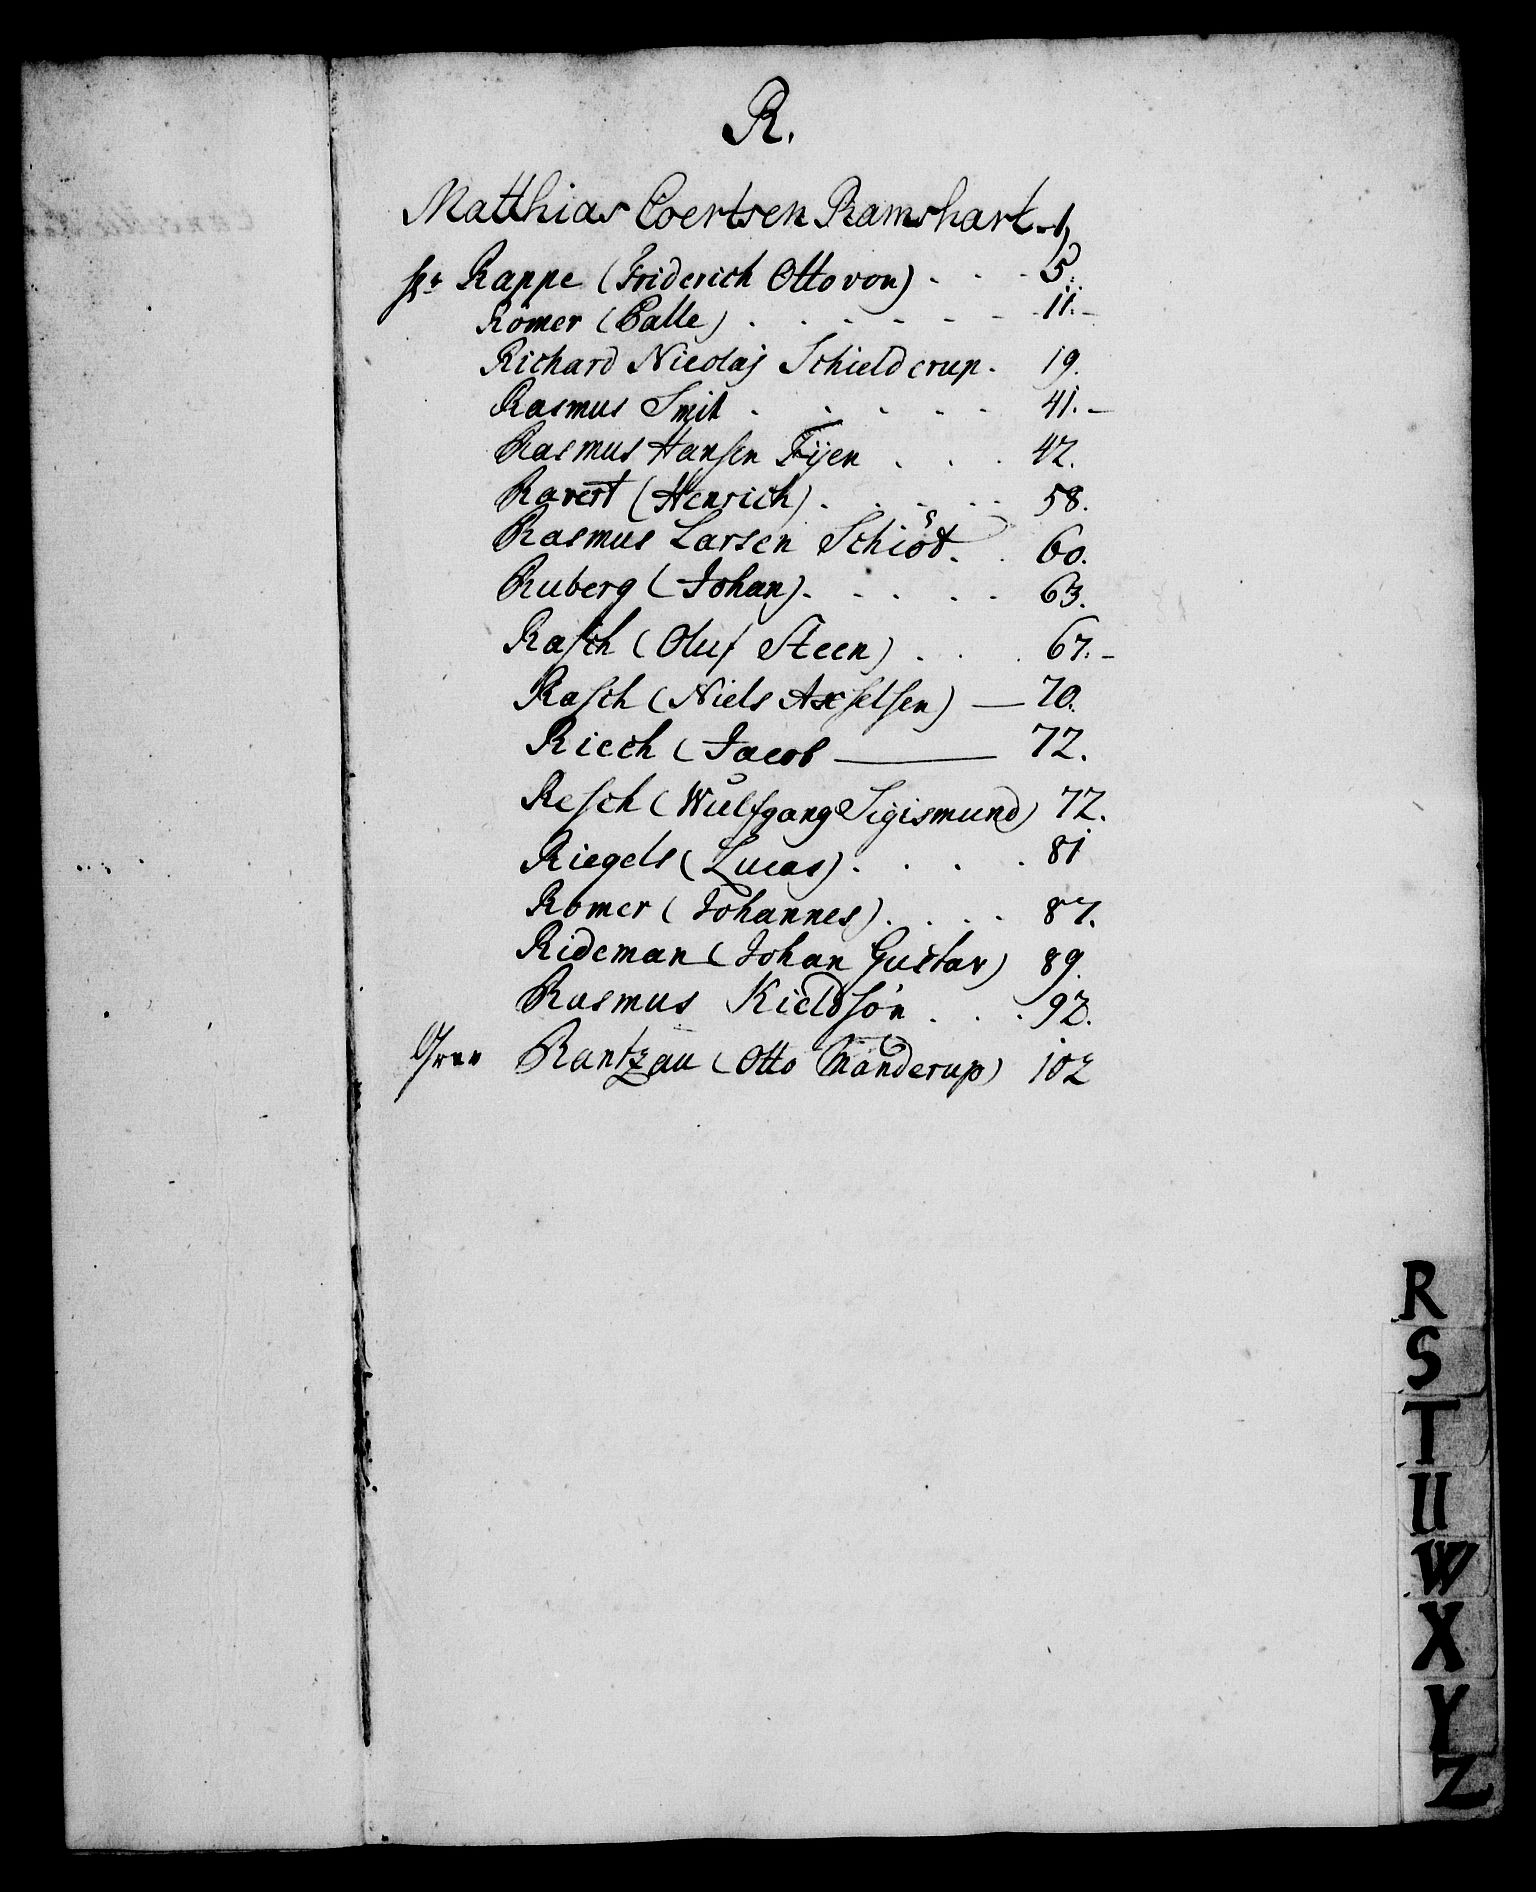 R.
Matthias Coertsen Ramshart. 1,
Hr Rappe (Friderich Otto von) . . . 5.
Romer (Calle) . . . . . . 11.-
Richard Nicolaj Schielderup. 19.
Rasmus Smit . . . . . 41.-
Rasmus Hansen Fÿen . . . 42.
Ravert (Henrich) . . . . . 58.
Rasmus Larsen Schiöt. . 60.
Ruberg (Johan). . . . . 63.
Rasch (Oluf Steen) . . . 67.-
Rasch (Niels Axselsen) — 70.
Riech (Jacob — 72.
Resch (Wulfgang Sigismund) 72.
Riegels (Lucas) . . . . 81
Romer (Johannes) . . . . 87.
Rideman (Johan Gustav) 89.
Rasmus Kieldsön . . . 92.
Rantzau (Otto Manderup) 102
R
S
T
U
W
X
Y
Z